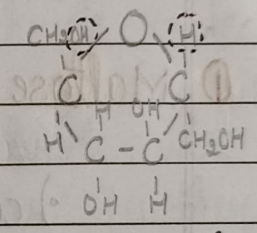 CH₂OH O H
C C
H H OH CH₂OH
C - C
OH H